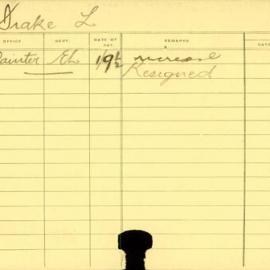 Drake L
OFFICE DEPT. RATE OF PAY REMARKS DATE
Painter EL 19½ increase
Resigned